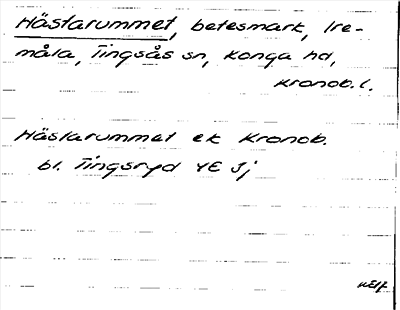 Hästarummet, betesmark, Ire-
måla, Tingsås sn, Konga hd,
Kronob. l.
Hästarummet ek Kronob.
bl. Tingsryd 4E 3j